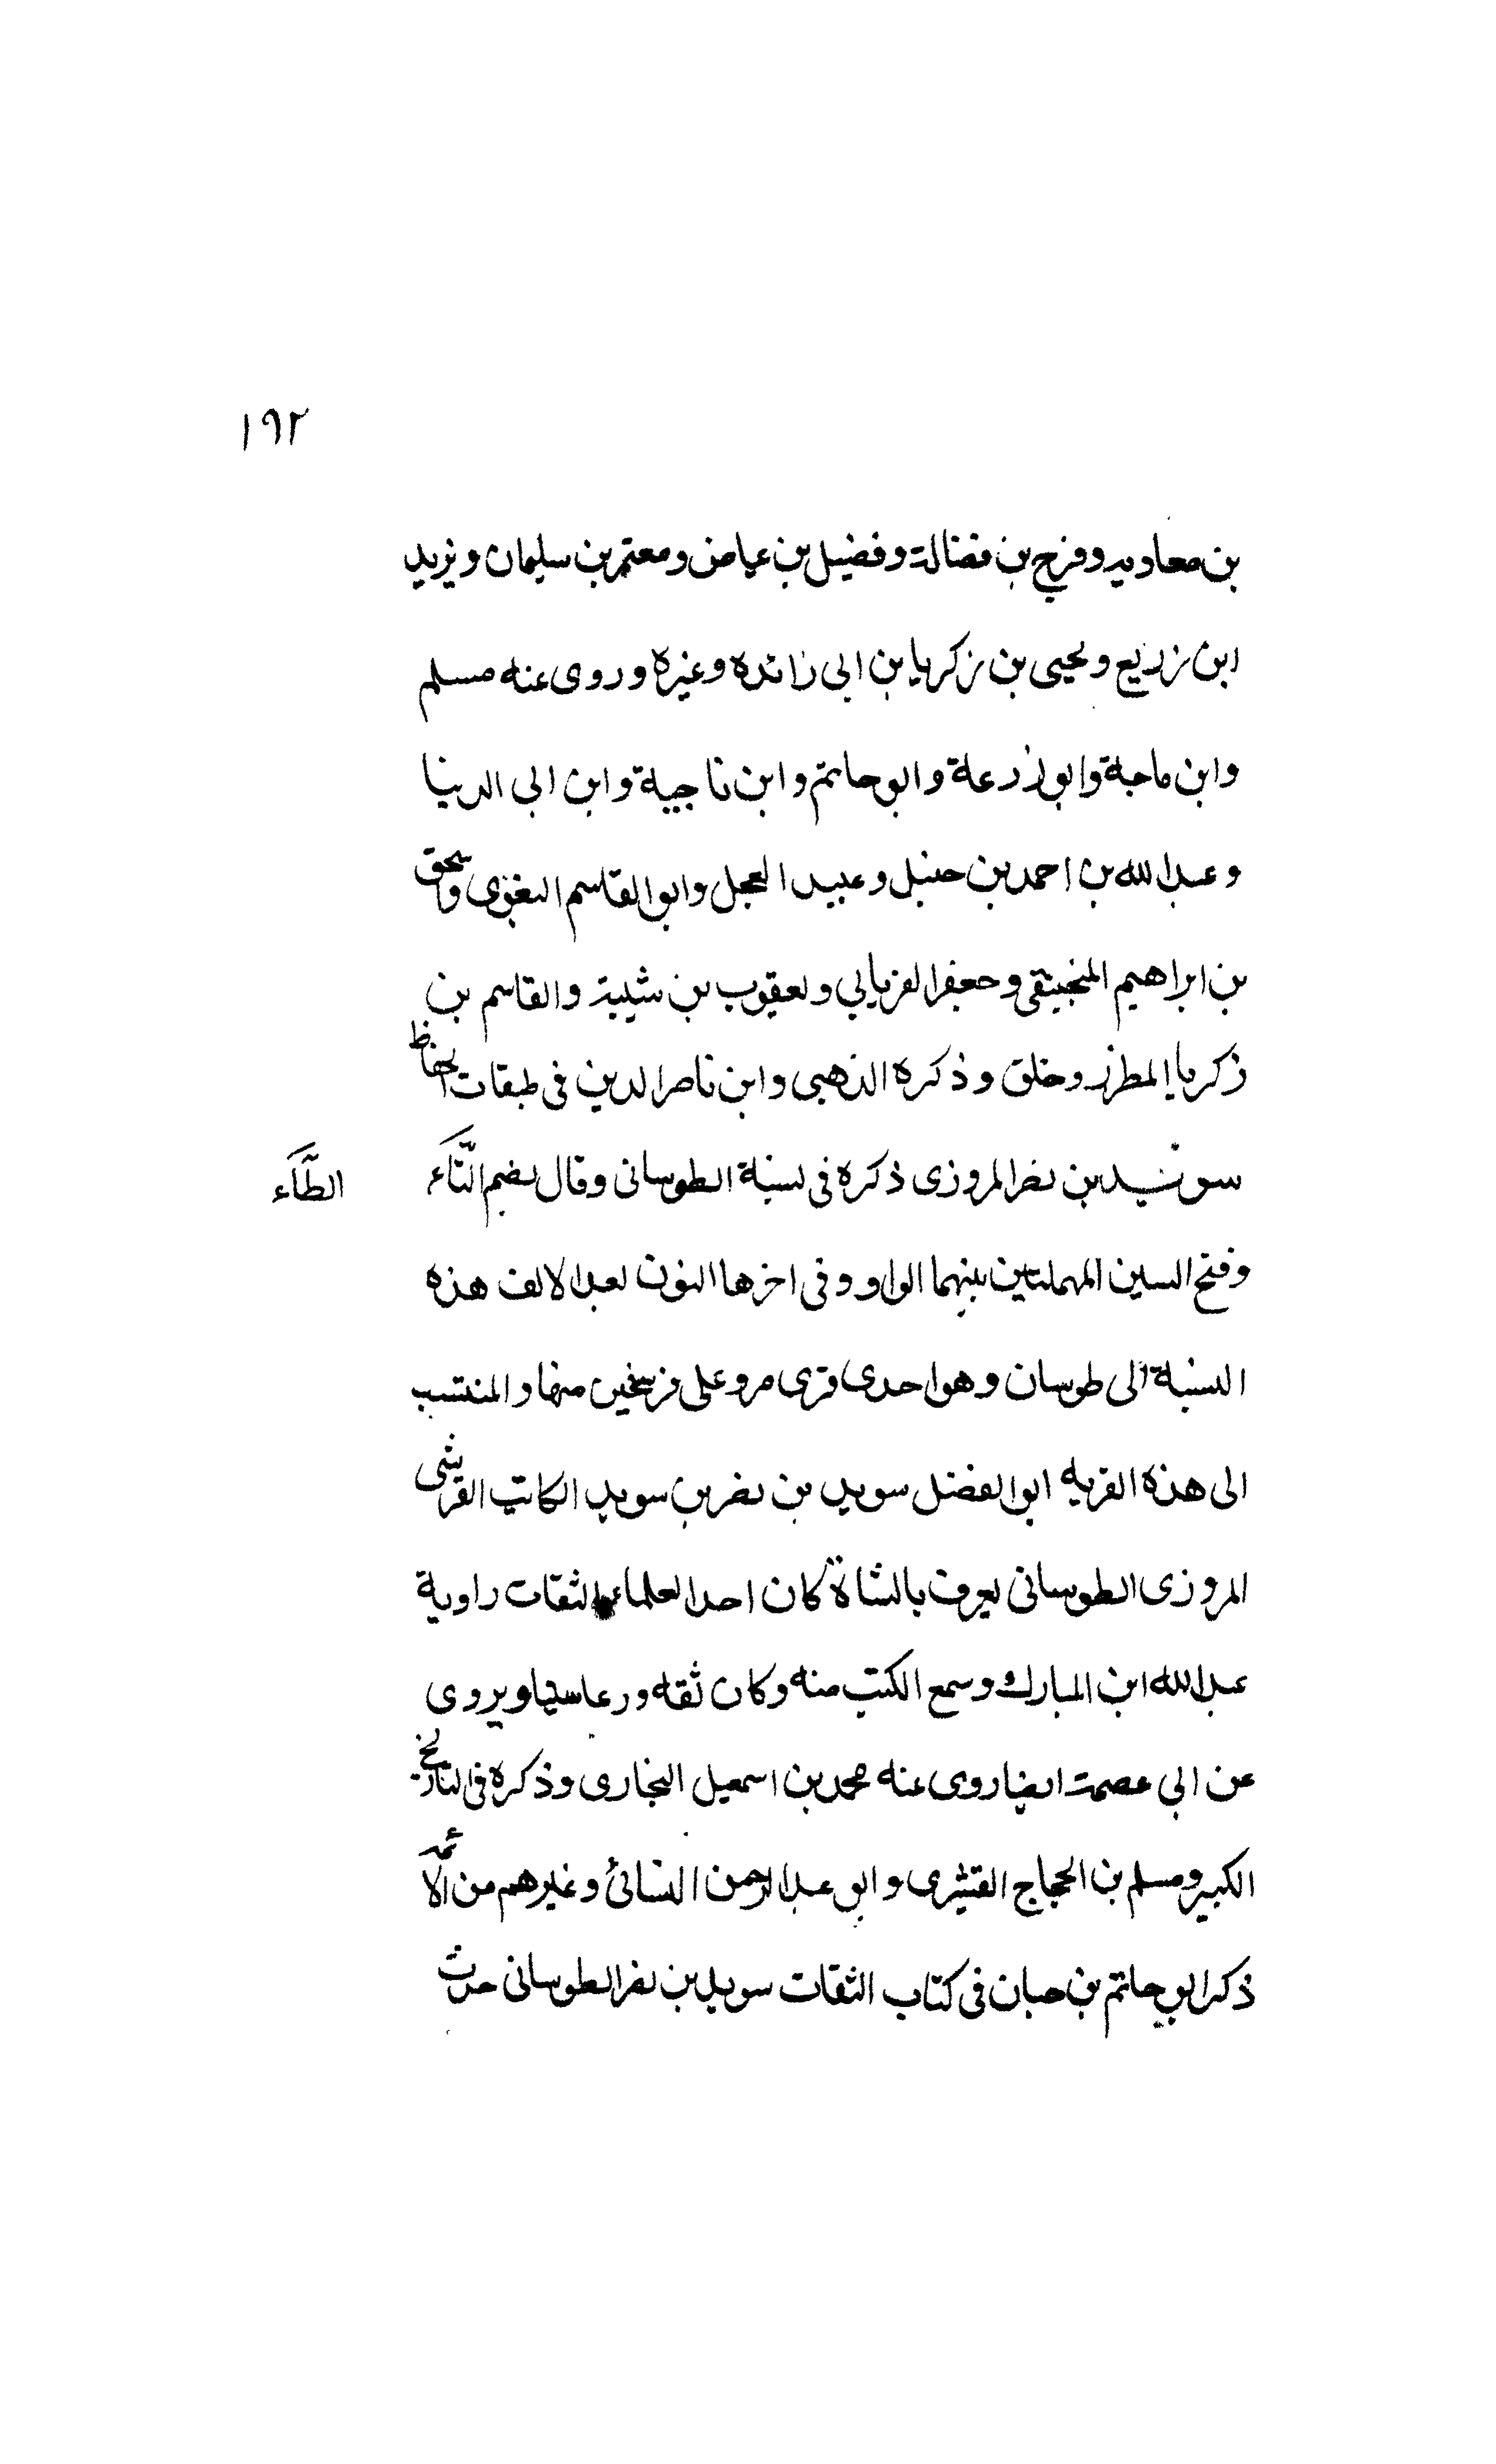 ١٩٢
بن معاويه وفرج بن فضالة وفضيل بن عياض ومعتمر بن سليمان ويزيد
ابن زريع ويحيى بن زكريا بن ابي زائده وغيره وروى عنه مسلم
وابن ماجة وابو زرعة وابو حاتم وابن ناجية وابن ابي الدنيا
وعبد الله بن احمد بن حنبل وعبيد العجل وابو القاسم البغوى واسحق
بن ابراهيم المنجنيقى وجعفر الفريابي ويعقوب بن شيبة والقاسم بن
زكريا المطرز وخلق وذكره الذهبى وابن ناصر الدين فى طبقات الحفاظ
سويد بن نصر المروزى ذكره فى نسبة الطوسانى وقال بضم التّاء
الطّاء
وفتح السين المهملتين بينهما الواو وفى اخرها النون بعد الالف هذه
النسبة الى طوسان وهو احدى قرى مرو على فرسخين منها والمنتسب
الى هذه القريه ابو الفضل سويد بن نصر بن سويد الكاتب القرشى
المروزى الطوسانى يعرف بالشاة كان احد العلماء الثقات راوية
عبد الله ابن المبارك وسمع الكتب منه وكان ثقه ورعا سنيا ويروى
عن ابي عصمة ايضا روى عنه محمد بن اسمعيل البخارى وذكره فى التاريخ
الكبير ومسلم بن الحجاج القشيرى وابو عبد الرحمن النسائ وغيرهم من الائمه
ذكر ابو حاتم بن حبان فى كتاب الثقات سويد بن نصر الطوسانى حدث